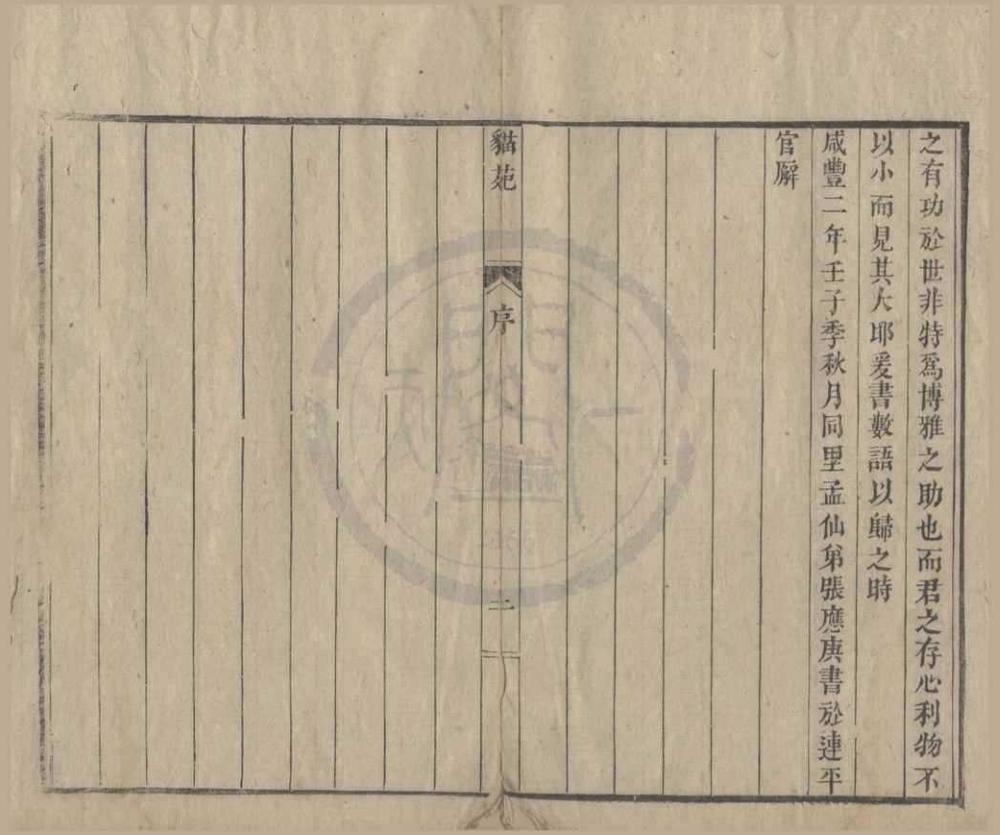 之有功於世非特爲博雅之助也而君之存心利物不
以小而見其大耶爰書數語以歸之時
咸豐二年壬子季秋月同里孟仙弟張應庚書於連平
官廨
貓苑
序
二